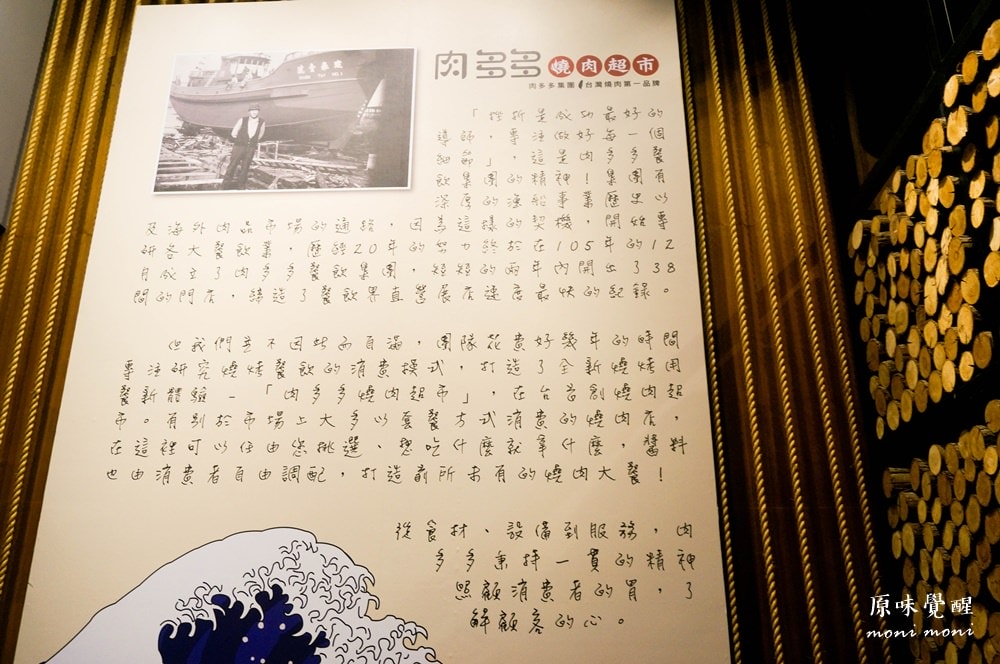 肉多多燒肉超市
肉多多集團 台灣燒肉第一品牌
「挫折是成功最好的
導師，專注做好每一個
細節」，這是肉多多餐
飲集團的精神！集團有
深厚的漁船事業歷史以
及海外肉品市場的通路，因為這樣的契機，開始專
研各大餐飲業，歷經20年的努力終於在105年的12
月成立了肉多多餐飲集團，短短的兩年內開出了38
間的門店，締造了餐飲界直營展店速度最快的紀錄。
但我們並不因此而自滿，團隊花費好幾年的時間
專注研究燒烤餐飲的消費模式，打造了全新燒烤用
餐新體驗－「肉多多燒肉超市」，在台首創燒肉超
市。有別於市場上大多以套餐方式消費的燒肉店，
在這裡可以任由您挑選、想吃什麼就拿什麼，醬料
也由消費者自由調配，打造前所未有的燒肉大餐！
從食材、設備到服務，肉
多多秉持一貫的精神
照顧消費者的胃，了
解顧客的心。
原味覺醒
moni moni